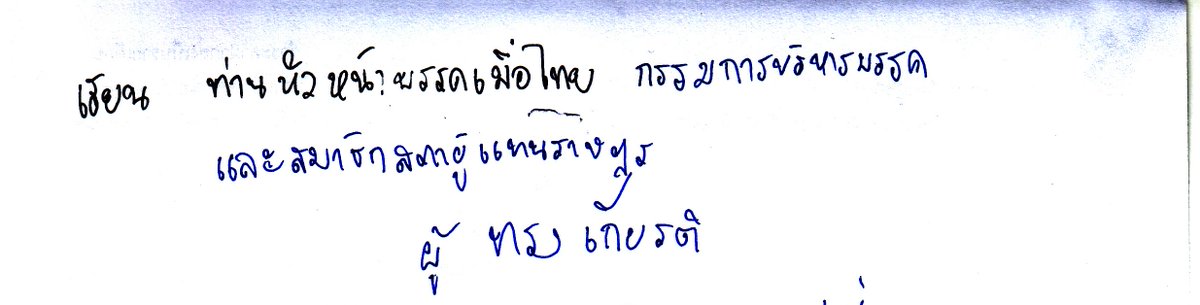 เรียน ท่านหัวหน้าพรรคเพื่อไทย กรรมการบริหารพรรค
และสมาชิกสภาผู้แทนราษฎร
ผู้ ทรง เกียรติ